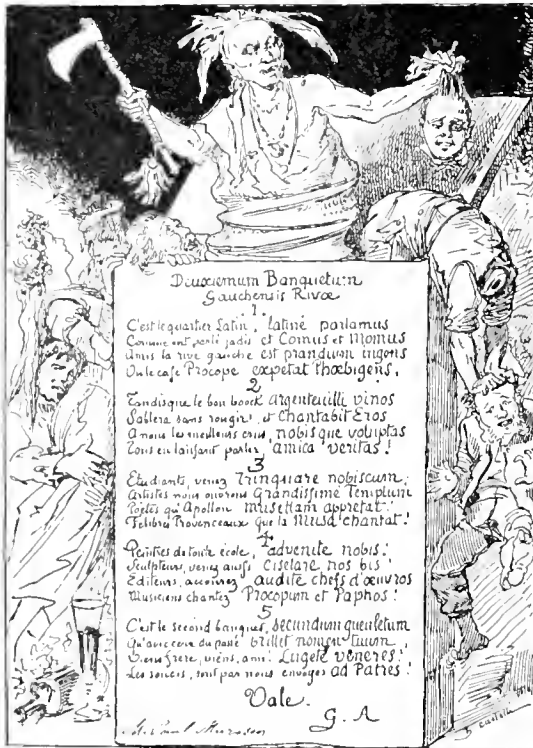 Deuxiemum Banquetum
Gauchensis Rivæ
1
C'est le quartier Latin, latinè parlamus
Comme ont parlé jadis et Comus et Momus
Amis la rive gauche est prandium ingens
Où le café Procope expetat Phœbigens,
2
Tandisque le bon boock argenteuilli vinos
Sablera sans rougir, et Chantabit Eros
A nous les meilleurs crus, nobis que voluptas
Tous en laissant parler, amica veritas!
3
Etudiants, venez Trinquare nobiscum;
Artistes nous ouvrons Grandissime Templum
Poëtes qu'Apollon musettam appretat!
Félibres Provenceaux que la Musa chantat!
4
Peintres de toute école, advenite nobis!
Sculpteurs, venez aussi Ciselare nos bis
Editeurs, accourez audite chefs d'œuvros
Musiciens chantez Procopum et Paphos!
5
C'est le second banquet, secundum gueuletum
Qu'avec ceux du passé brillet nomen tuum,
Viens frère, viens, ami! Lugete veneres!
Les soucis, sont par nous envoyés ad Patres!
Vale.
G. A